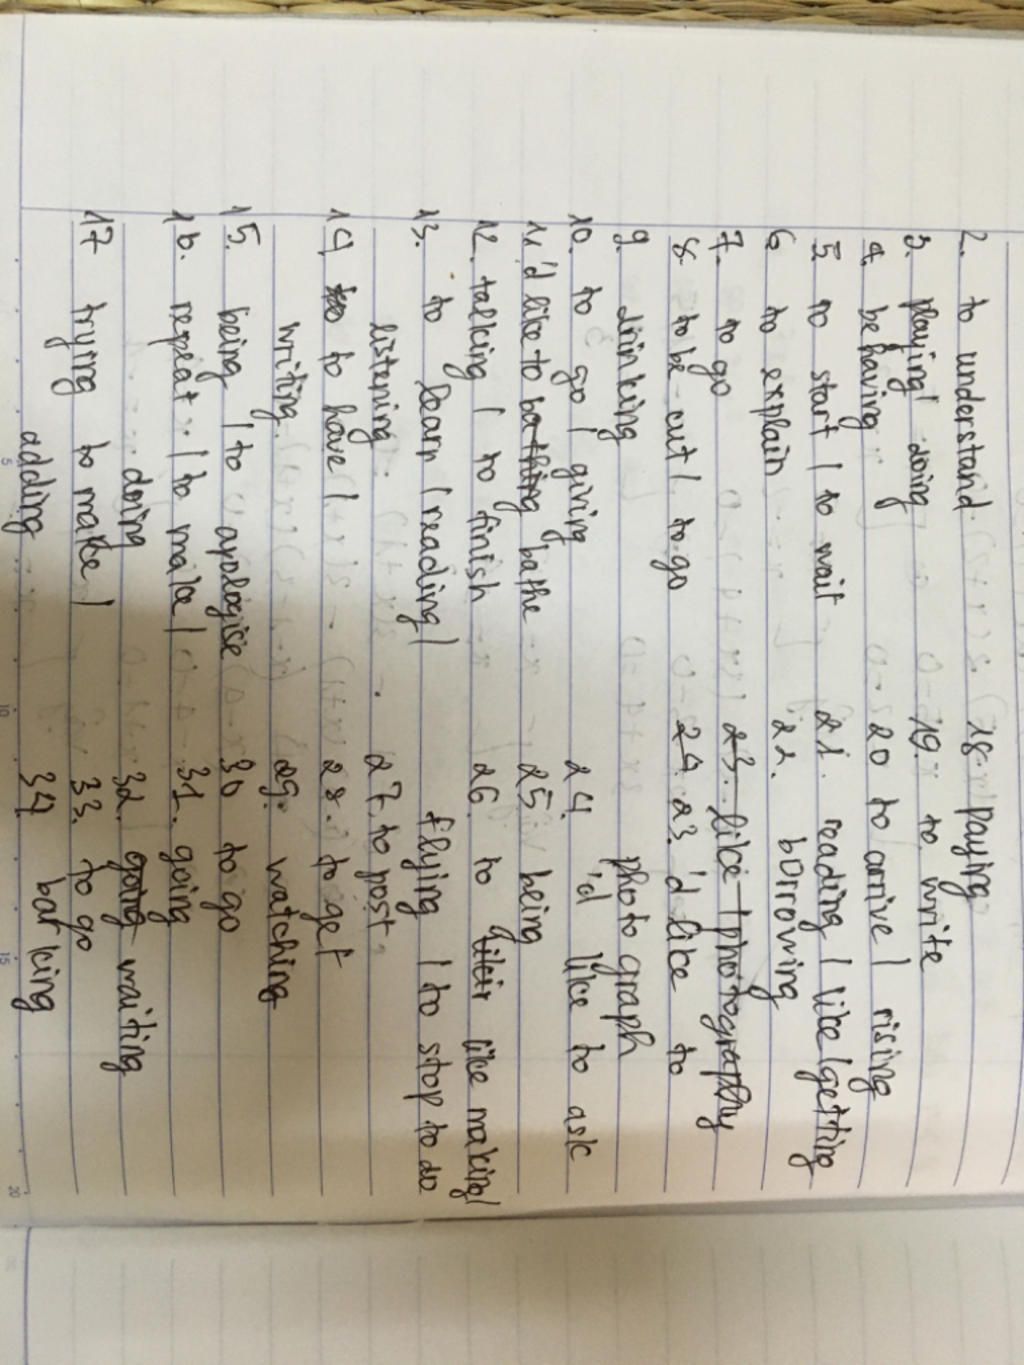 2. to understand
3. playing / doing
4. behaving
5 to start / to wait
6 to explain
7. to go
8. to be cut / to go
9. drinking
10. to go / giving
11. 'd like to bathing bathe
12. talking / to finish
13. to learn / reading /
listening
14 to to have /
writing
15. being / to apologise
16. repeat / to make /
doing
17 trying to make /
adding
18. paying
19. to write
20 to arrive / rising
21. reading / like / getting
22. borrowing
23. like / photography
24. 23. 'd like to
photograph
24. 'd like to ask
25 being
26. to like making /
flying / to stop to do
27. to post
28. to get
29. watching
30 to go
31. going
32. going waiting
33. to go
34 barking
5
10
15
20